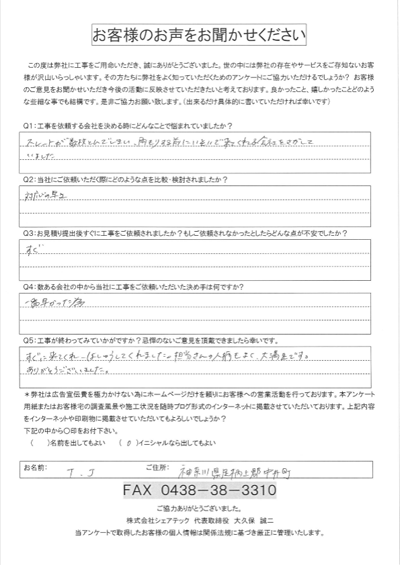 お客様のお声をお聞かせください
この度は弊社に工事をご用命いただき、誠にありがとうございました。世の中には弊社の存在やサービスをご存知ないお客
様が沢山いらっしゃいます。その方たちに弊社をよく知っていただくためのアンケートにご協力いただけるでしょうか？ お客様
のご意見をお聞かせいただき今後の活動に反映させていただきたいと考えております。良かったこと、嬉しかったことどのよう
な些細な事でも結構です。是非ご協力お願い致します。（出来るだけ具体的に書いていただければ幸いです）
Q1：工事を依頼する会社を決める時にどんなことで悩まれていましたか？
スレートが数枚とんでしまい、雨もりする前にいそいで来てくれる会社をさがして
いました
Q2：当社にご依頼いただく際にどのような点を比較・検討されましたか？
対応の早さ
Q3：お見積り提出後すぐに工事をご依頼されましたか？もしご依頼されなかったとしたらどんな点が不安でしたか？
すぐ
Q4：数ある会社の中から当社に工事をご依頼いただいた決め手は何ですか？
一番早かった
Q5：工事が終わってみていかがですか？忌憚のないご意見を頂戴できましたら幸いです。
すぐに来てくれ、ほしゅうしてくれました。担当さんの人柄もよく、大満足です。
ありがとうございました。
＊弊社は広告宣伝費を極力かけない為にホームページだけを頼りにお客様への営業活動を行っております。本アンケート
用紙またはお客様宅の調査風景や施工状況を随時ブログ形式のインターネットに掲載させていただいております。上記内容
をインターネットや印刷物に掲載させていただいてもよろしいでしょうか？
下記の中から〇印をお付下さい。
（ ）名前を出してもよい （ 0 ）イニシャルなら出してもよい
お名前： T.J ご住所： 神奈川県足柄上郡中井町
FAX 0438-38-3310
ご協力ありがとうございました。
株式会社シェアテック 代表取締役 大久保 誠二
当アンケートで取得したお客様の個人情報は関係法規に基づき厳正に管理いたします。